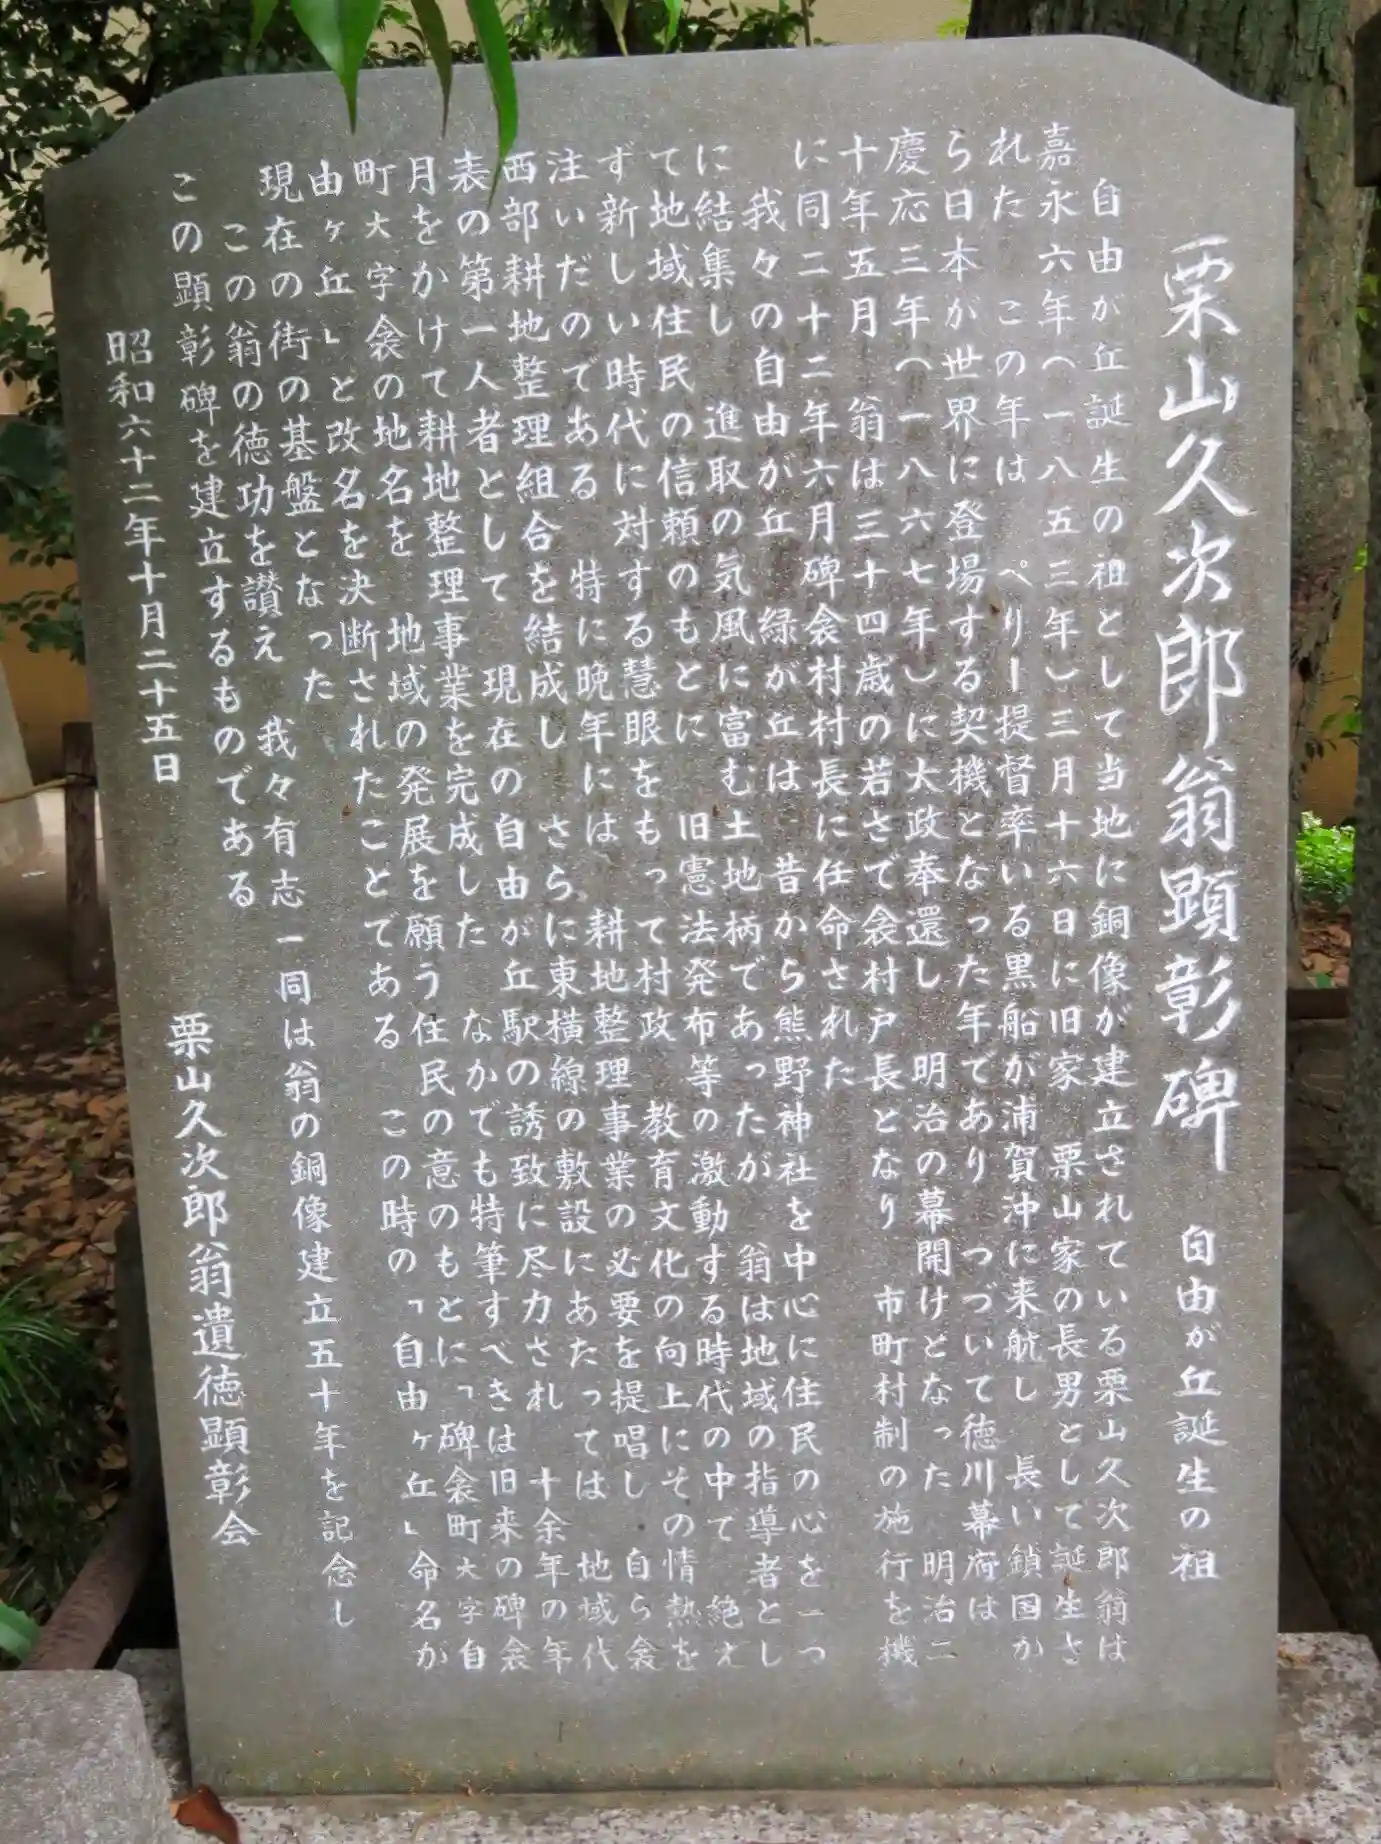 栗山久次郎翁顕彰碑　自由が丘誕生の祖
自由が丘誕生の祖として当地に銅像が建立されている栗山久次郎翁は
嘉永六年（一八五三年）三月十六日に旧家　栗山家の長男として誕生さ
れた　この年は　ぺりー提督率いる黒船が浦賀沖に来航し　長い鎖国か
ら日本が世界に登場する契機となった年であり　つづいて徳川幕府は
慶応三年（一八六七年）に大政奉還し　明治の幕開けとなった　明治二
十年五月　翁は三十四歳の若さで衾村戸長となり　市町村制の施行を機
に同二十二年六月碑衾村村長に任命された
我々の自由が丘　緑が丘は　昔から熊野神社を中心に住民の心を一つ
に結集し　進取の気風に富む土地柄であったが　翁は地域の指導者とし
て地域住民の信頼のもとに　旧憲法発布等の激動する時代の中て　絶え
ず新しい時代に対する慧眼をもって村政　教育文化の向上にその情熱を
注いだのてある　特に晩年には　耕地整理事業の必要を提唱し　自ら衾
西部耕地整理組合を結成し　さらに東横線の敷設にあたっては　地域代
表の第一人者として　現在の自由が丘駅の誘致に尽力され　十余年の年
月をかけて耕地整理事業を完成した　なかでも特筆すべきは旧来の碑衾
町大字衾の地名を　地域の発展を願う住民の意のもとに「碑衾町大字自
由ヶ丘」と改名を決断されたことである　この時の「自由ヶ丘」命名が
現在の街の基盤となった
この翁の徳功を讃え　我々有志一同は翁の銅像建立五十年を記念し
この顕彰碑を建立するものである
昭和六十二年十月二十五日　栗山久次郎翁遺徳顕彰会